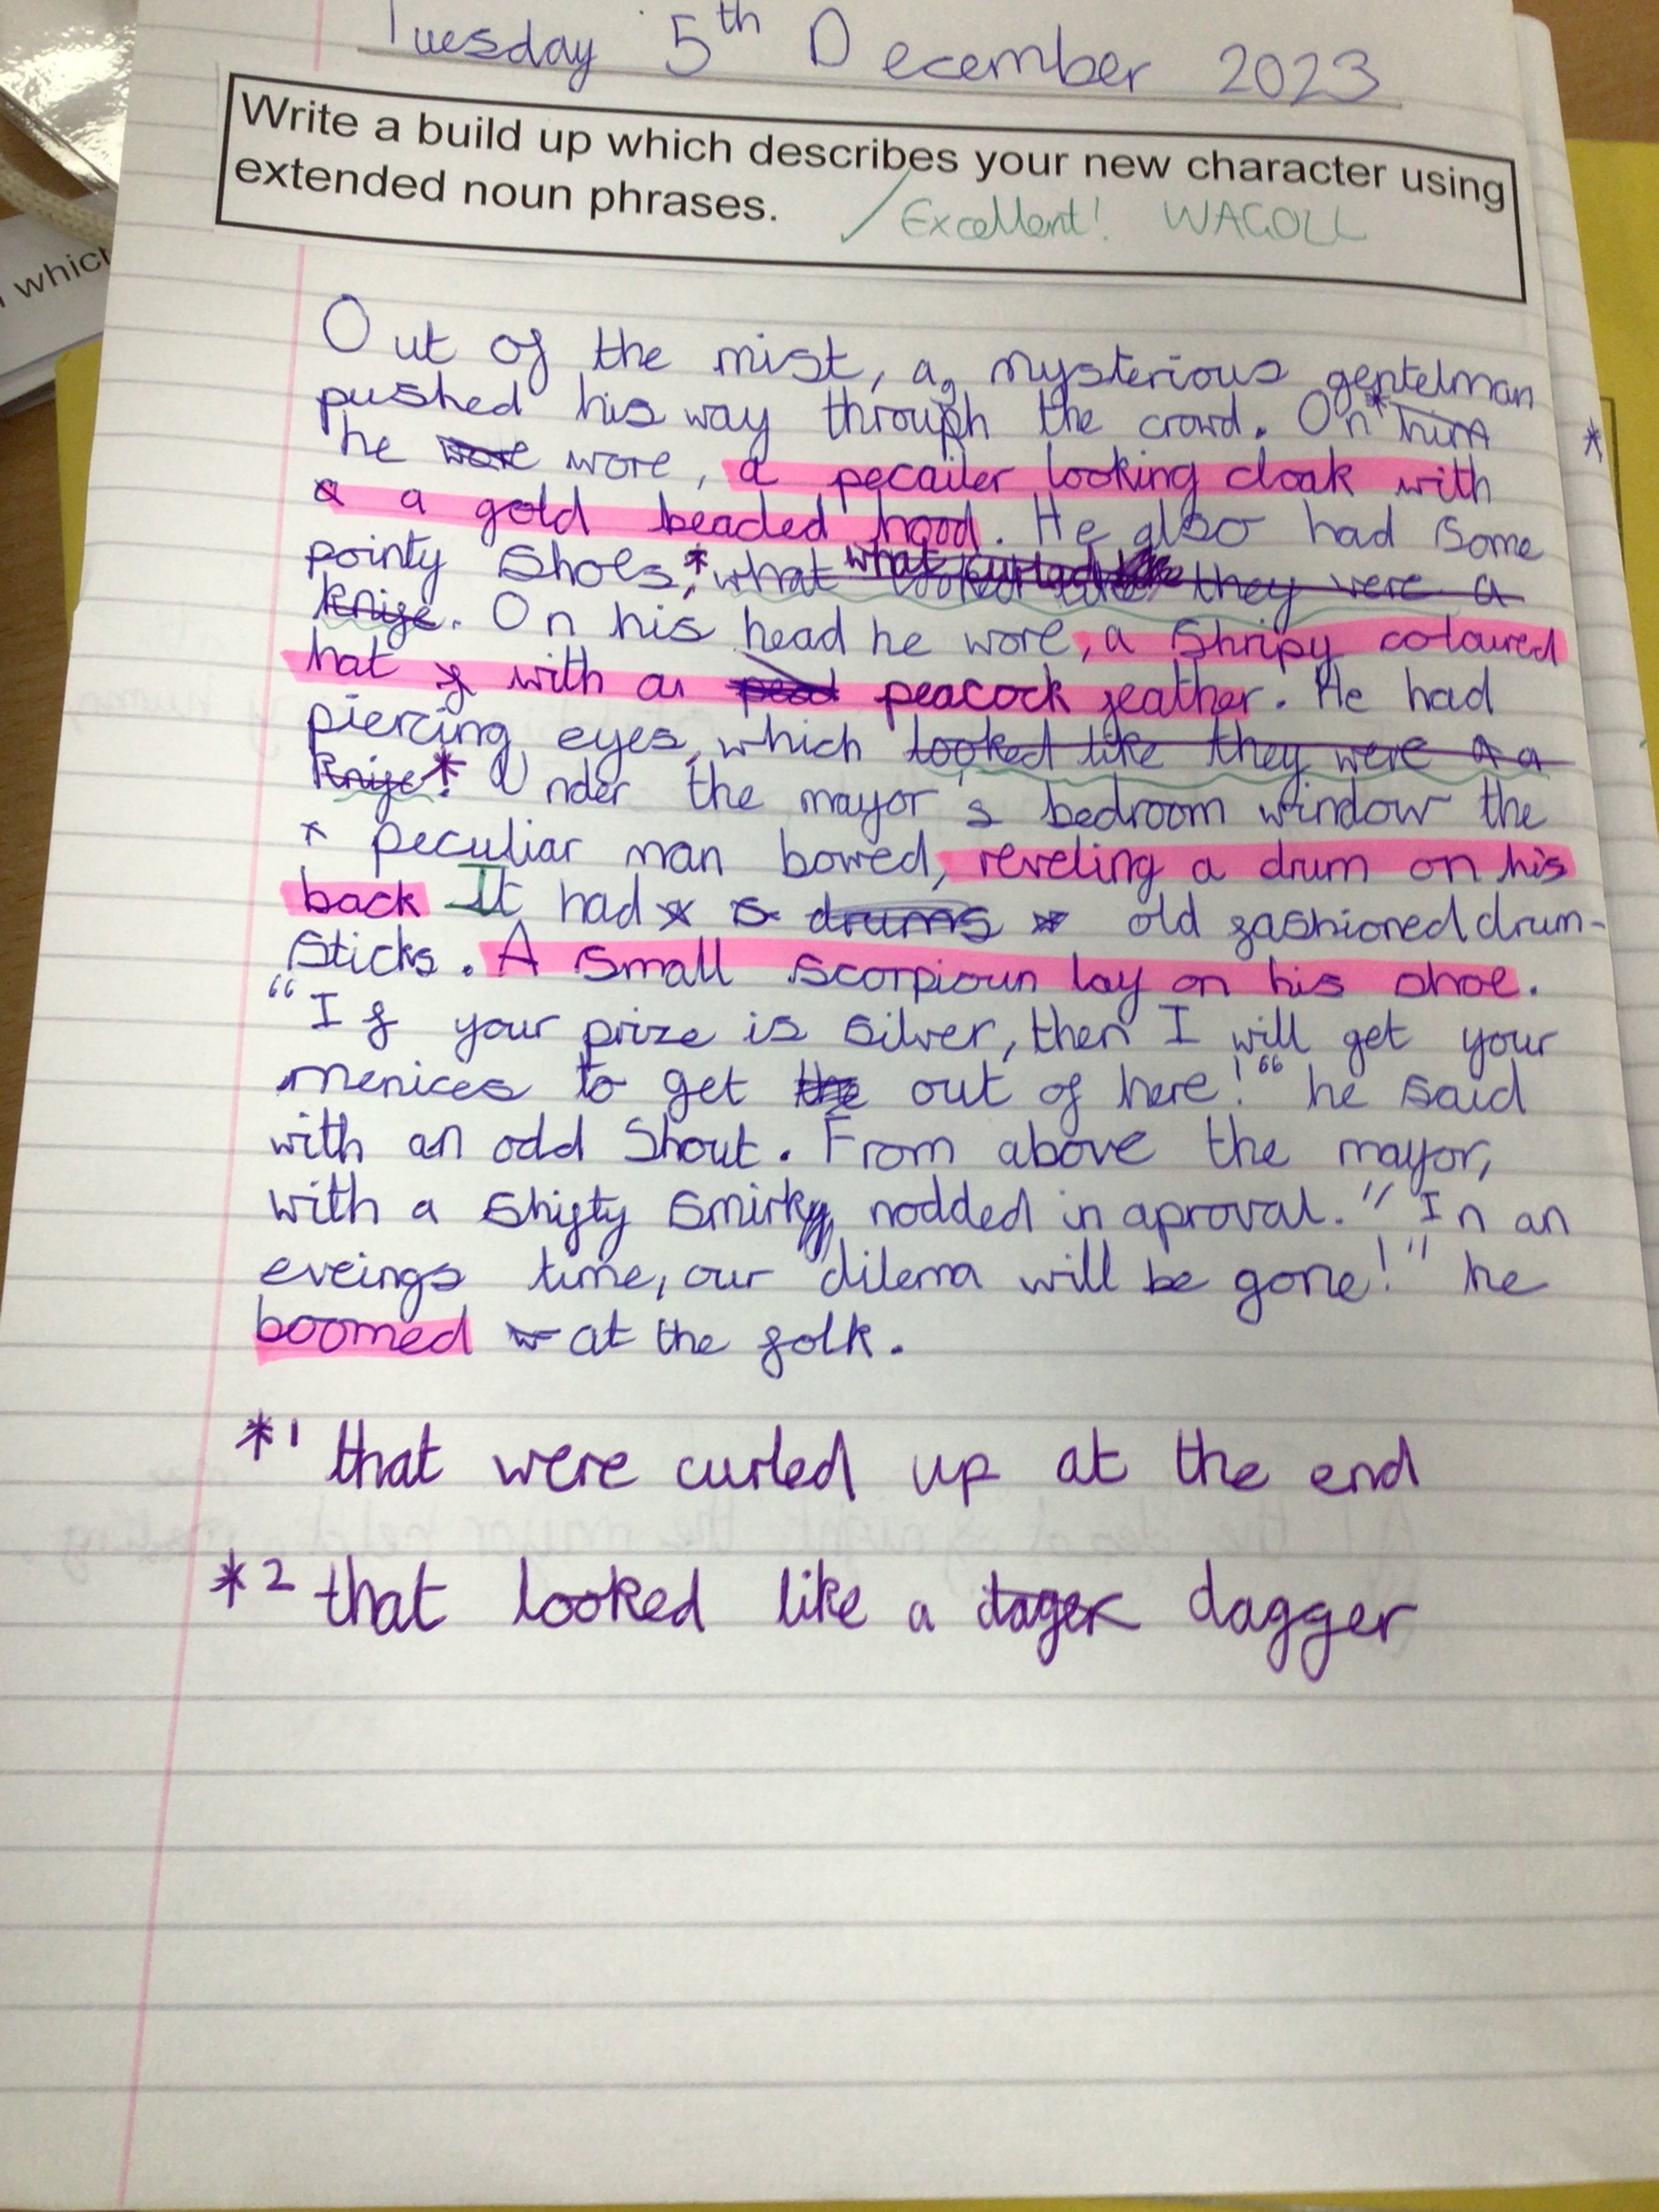 Tuesday 5th December 2023
Write a build up which describes your new character using
extended noun phrases.
Excellent! WAGOLL
which
Out of the mist, a mysterious gentelman
pushed his way through the crowd. On him *
he wore wore, a pecailer looking cloak with
a a gold beaded hood. He also had some
pointy shoes,* what what curled like they were a
knife. On his head he wore, a shripy coloured
hat f with a peacock feather. He had
piercing eyes, which looked like they were a a
knife*. Under the mayor's bedroom window the
* peculiar man bowed, reveling a drum on his
back It had drums old fashioned drum-
sticks. A small scorpioun lay on his shoe.
"If your prize is silver, then I will get your
menices to get the out of here!" he said
with an odd shout. From above the mayor,
with a shifty smirk, nodded in aproval. "In an
eveings time, our dilema will be gone!" he
boomed at the folk.
*1 that were curled up at the end
*2 that looked like a dager dagger